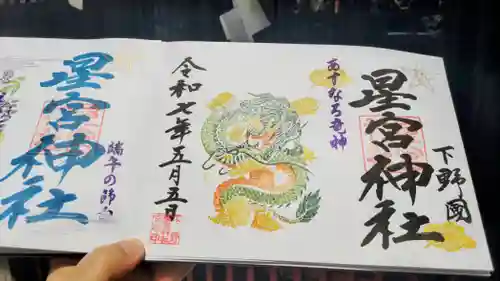 下野國
星宮神社
あすなろ竜神
令和七年五月五日
星宮神社
端午の節